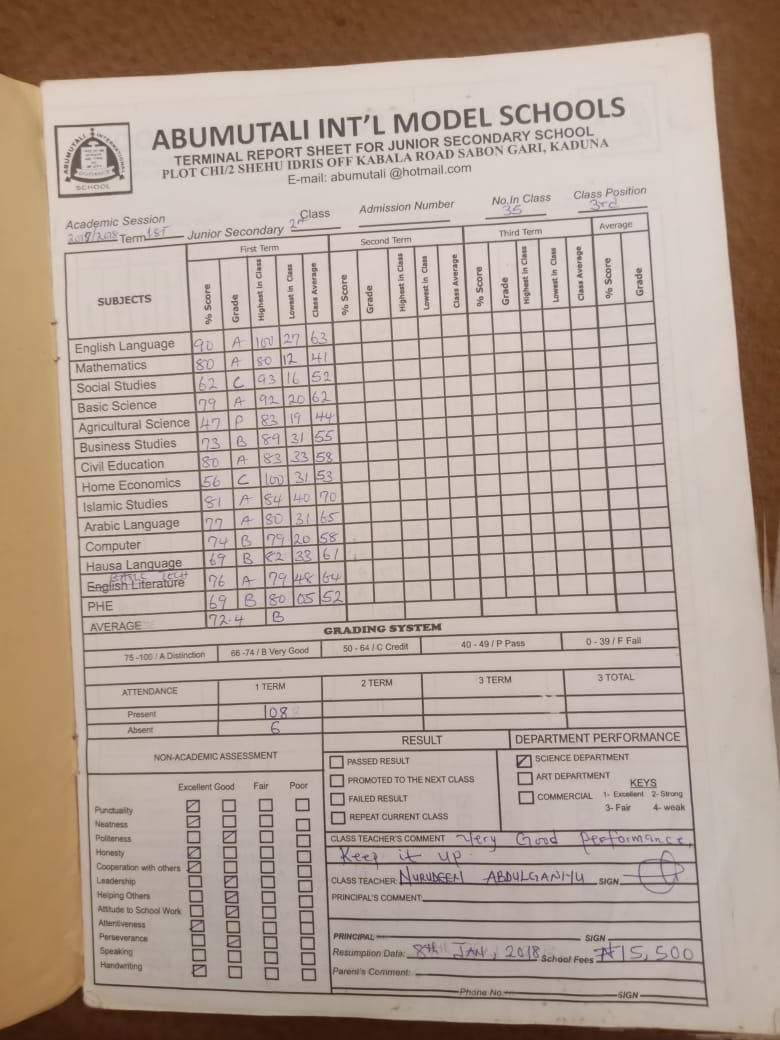 ABUMUTALI INT'L MODEL SCHOOLS
TERMINAL REPORT SHEET FOR JUNIOR SECONDARY SCHOOL
PLOT CHI/2 SHEHU IDRIS OFF KABALA ROAD SABON GARI, KADUNA
E-mail: abumutali @hotmail.com
ABUMUTALI INTERNATIONAL
SCHOOL
Academic Session Class Admission Number No.In Class 35 Class Position 3rd
2017/2018 Term 1ST Junior Secondary 2A
First Term Second Term Third Term Average
SUBJECTS % Score Grade Highest in Class Lowest in Class Class Average % Score Grade Highest in Class Lowest in Class Class Average % Score Grade Highest in Class Lowest in Class Class Average % Score Grade
English Language 90 A 100 27 63
Mathematics 80 A 80 12 41
Social Studies 62 C 93 16 52
Basic Science 79 A 92 20 62
Agricultural Science 47 P 83 19 44
Business Studies 73 B 89 31 55
Civil Education 80 A 83 33 58
Home Economics 56 C 100 31 53
Islamic Studies 81 A 84 40 70
Arabic Language 77 A 80 31 65
Computer 74 B 79 20 58
Hausa Language 69 B 82 33 61
BASIC TECH
English Literature 76 A 79 48 64
PHE 69 B 80 05 52
AVERAGE 72.4 B
GRADING SYSTEM
75 -100 / A Distinction 66 -74 / B Very Good 50 - 64 / C Credit 40 - 49 / P Pass 0 - 39 / F Fail
ATTENDANCE 1 TERM 2 TERM 3 TERM 3 TOTAL
Present 108
Absent 6
NON-ACADEMIC ASSESSMENT
Excellent Good Fair Poor
Punctuality
Neatness
Politeness
Honesty
Cooperation with others
Leadership
Helping Others
Attitude to School Work
Attentiveness
Perseverance
Speaking
Handwriting
RESULT
PASSED RESULT
PROMOTED TO THE NEXT CLASS
FAILED RESULT
REPEAT CURRENT CLASS
DEPARTMENT PERFORMANCE
SCIENCE DEPARTMENT
ART DEPARTMENT KEYS
COMMERCIAL 1- Excellent 2- Strong
3- Fair 4- weak
CLASS TEACHER'S COMMENT Very Good Performance,
Keep it up
CLASS TEACHER: NURUDEEN ABDULGANIYU SIGN
PRINCIPAL'S COMMENT:
PRINCIPAL SIGN
Resumption Data: 8th JAN, 2018 School Fees ₦15,500
Parent's Comment:
Phone No: SIGN